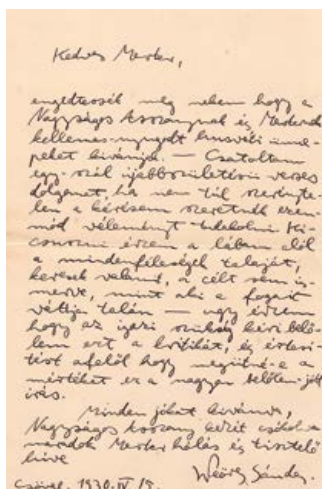 Kedves Mester,
engedtessék meg nekem hogy a
Nagyságos Asszonynak és Mesternek
kellemes-nyugodt husvéti ünne-
peket kivánjak. — Csatoltam
egy-szál újabbszületésű verses
dolgomat, ha nem túl szerényte-
len a kérésem szeretnék ezen-
mód véleményt tudakolni. Ki-
csuszni érzem a lábam alól
a mindenféleségek talaját,
keresek valamit, a célt sem is-
merve, mint aki a fogait
váltja talán — ugy érzem
hogy az igazi szükség kéri belő-
lem ezt a kritikát, és értesi-
tést afelől hogy megütné-e a
mértéket ez a nagyon belőlem-jött
írás.
Minden jókat kivánva,
Nagyságos Asszony kezét csókolva
maradok Mester hálás és tisztelő
híve
Weöres Sándor.
Csönge, 1930. IV. 19.